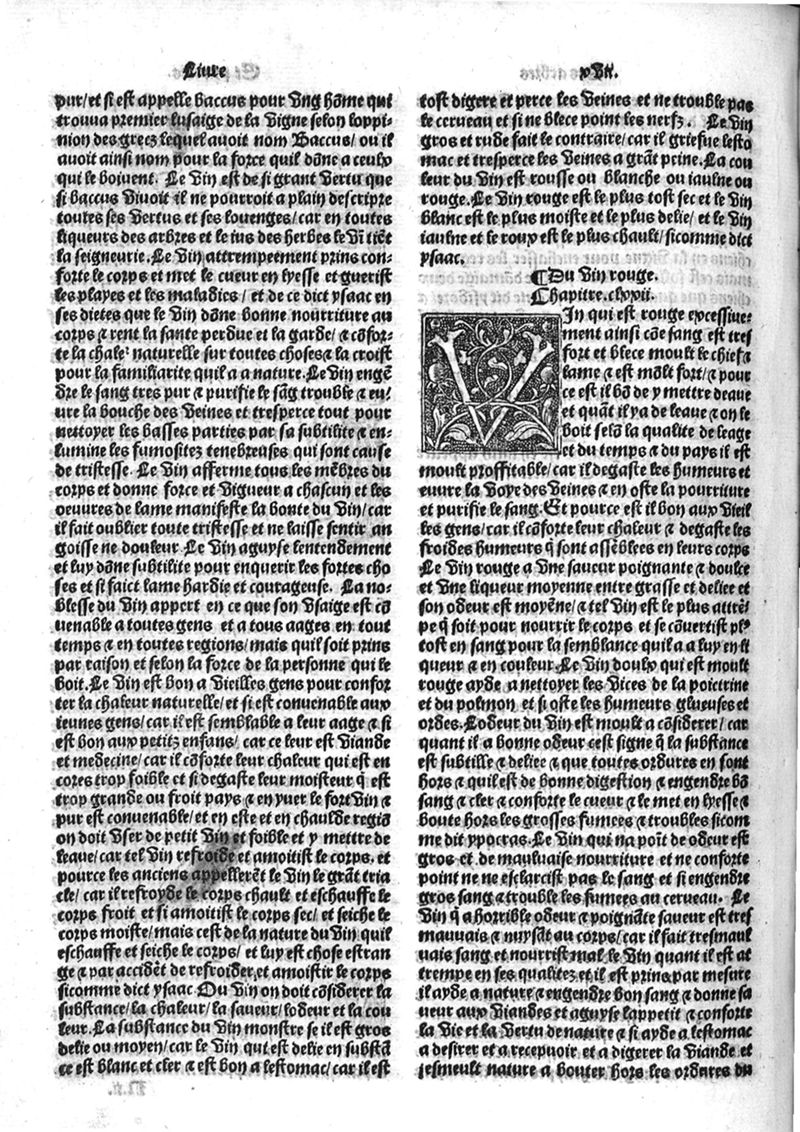 Liure
pur/ et si est appelle baccus pour vng hõme qui
trouua premier lusaige de la vigne selon loppi-
nion des grecz lequel auoit nom Baccus/ ou il
auoit ainsi nom pour la force quil dõne a ceulx
qui le boiuent. Le vin est de si grant vertu que
si baccus viuoit il ne pourroit a plain descripre
toutes ses vertus et ses louenges/ car en toutes
liqueurs des arbres et le ius des herbes le vĩ tiẽt
la seigneurie. Le vin attrempeement prins con-
forte le corps et met le cueur en lyesse et guerist
les playes et les maladies/ et de ce dict ysaac en
ses dietes que le vin dõne bonne nourriture au
corps & rent la sante perdue et la garde/ & cõfor-
te la chale² naturelle sur toutes choses & la croist
pour la familiarite quil a a nature. Le vin engẽ
dre le sang tres pur & purifie le sãg trouble & eu/
ure la bouche des veines et tresperce tout pour
nettoyer les basses parties par sa subtilite & en-
lumine les fumositez tenebreuses qui sont cause
de tristesse. Le vin afferme tous les mẽbres du
corps et donne force et vigueur a chascun et les
oeuures de lame manifeste la bonte du vin/ car
il fait oublier toute tristesse et ne laisse sentir an
goisse ne douleur Le vin aguyse lentendement
et luy dõne subtilite pour enquerir les fortes cho
ses et si faict lame hardie et courageuse. La no-
blesse du vin appert en ce que son vsaige est cõ
uenable a toutes gens et a tous aages en tout
temps & en toutes regions/ mais quil soit prins
par raison et selon la force de la personne qui le
boit. Le vin est bon a vieilles gens pour confor
ter la chaleur naturelle/ et si est conuenable aux
ieunes gens/ car il est semblable a leur aage & si
est bon aux petitz enfans/ car ce leur est viande
et medecine/ car il cõforte leur chaleur qui est en
cores trop foible et si degaste leur moisteur q̃ est
trop grande ou froit pays & en yuer le fort vin &
pur est conuenable/ et en este et en chaulde regiõ
on doit vser de petit vin et foible et y mettre de
leaue/ car tel vin refroide et amoitist le corps. et
pource les anciens appellerẽt le vin le grãt tria
cle/ car il refroyde le corps chault et eschauffe le
corps froit et si amoitist le corps sec/ et seiche le
corps moiste/ mais cest de la nature du vin quil
eschauffe et seiche le corps/ et luy est chose estran
ge & par accidẽt de refroider, et amoistir le corps
sicomme dict ysaac. Ou vin on doit cõsiderer la
substance/ la chaleur/ la saueur/ lodeur et la cou
leur. La substance du vin monstre se il est gros
delie ou moyen/ car le vin qui est delie en substã
ce est blanc et cler & est bon a lestomac/ car il est
xvii.
tost digere et perce les veines et ne trouble pas
le cerueau et si ne blece point les nerfz. Le vin
gros et rude fait le contraire/ car il griefue lesto
mac et tresperce les veines a grãt peine. La cou
leur du vin est rousse ou blanche ou iaulne ou
rouge. Le vin rouge est le plus tost sec et le vin
blanc est le plus moiste et le plus delie/ et le vin
iaulne et le roux est le plus chault/ sicomme dict
ysaac.
¶Du vin rouge.
¶Chapitre. clxxii.
VIn qui est rouge excessiue-
ment ainsi cõe sang est tres
fort et blece moult le chief &
lame & est mõlt fort/ & pour
ce est il bõ de y mettre deaue
et quãt il y a de leaue & on le
boit selõ la qualite de leage
et du temps & du pays il est
moult proffitable/ car il degaste les humeurs et
euure la voye des veines & en oste la pourriture
et purifie le sang. Et pource est il bon aux vieil
les gens/ car il cõforte leur chaleur & degaste les
froides humeurs q̃ sont assẽblees en leurs corps
Le vin rouge a vne saueur poignante & doulce
et vne liqueur moyenne entre grasse et deliee et
son odeur est moyẽne/ & tel vin est le plus attrẽ-
pe q̃ soit pour nourrir le corps et se cõuertist pl⁹
tost en sang pour la semblance quil a a luy en li
queur & en couleur. Le vin doulx qui est moult
rouge ayde a nettoyer les vices de la poictrine
et du polmon et si oste les humeurs glueuses et
ordes. Lodeur du vin est moult a cõsiderer/ car
quant il a bonne odeur cest signe q̃ la substance
est subtille & deliee & que toutes ordures en sont
hors & quil est de bonne digestion & engendre bõ
sang & cler & conforte le cueur & le met en lyesse &
boute hors les grosses fumees & troubles sicom
me dit ypocras. Le vin qui na poĩt de odeur est
gros et de mauluaise nourriture et ne conforte
point ne ne esclarcist pas le sang et si engendre
gros sang & trouble les fumees au cerueau. Le
vin q̃ a horrible odeur & poignãte saueur est tres
mauuais & nuysãt au corps/ car il fait tresmaul
uais sang et nourrist mal. Le vin quant il est at
trempe en ses qualitez et il est prins par mesure
il ayde a nature & engendre bon sang & donne sa
ueur aux viandes et aguyse lappetit & conforte
la vie et la vertu de nature & si ayde a lestomac
a desirer et a recepuoir et a digerer la viande et
iesmeult nature a bouter hors les ordures du